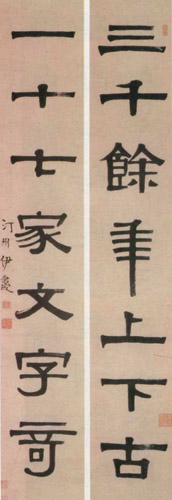 三千餘年上下古
一十七家文字奇
汀州伊